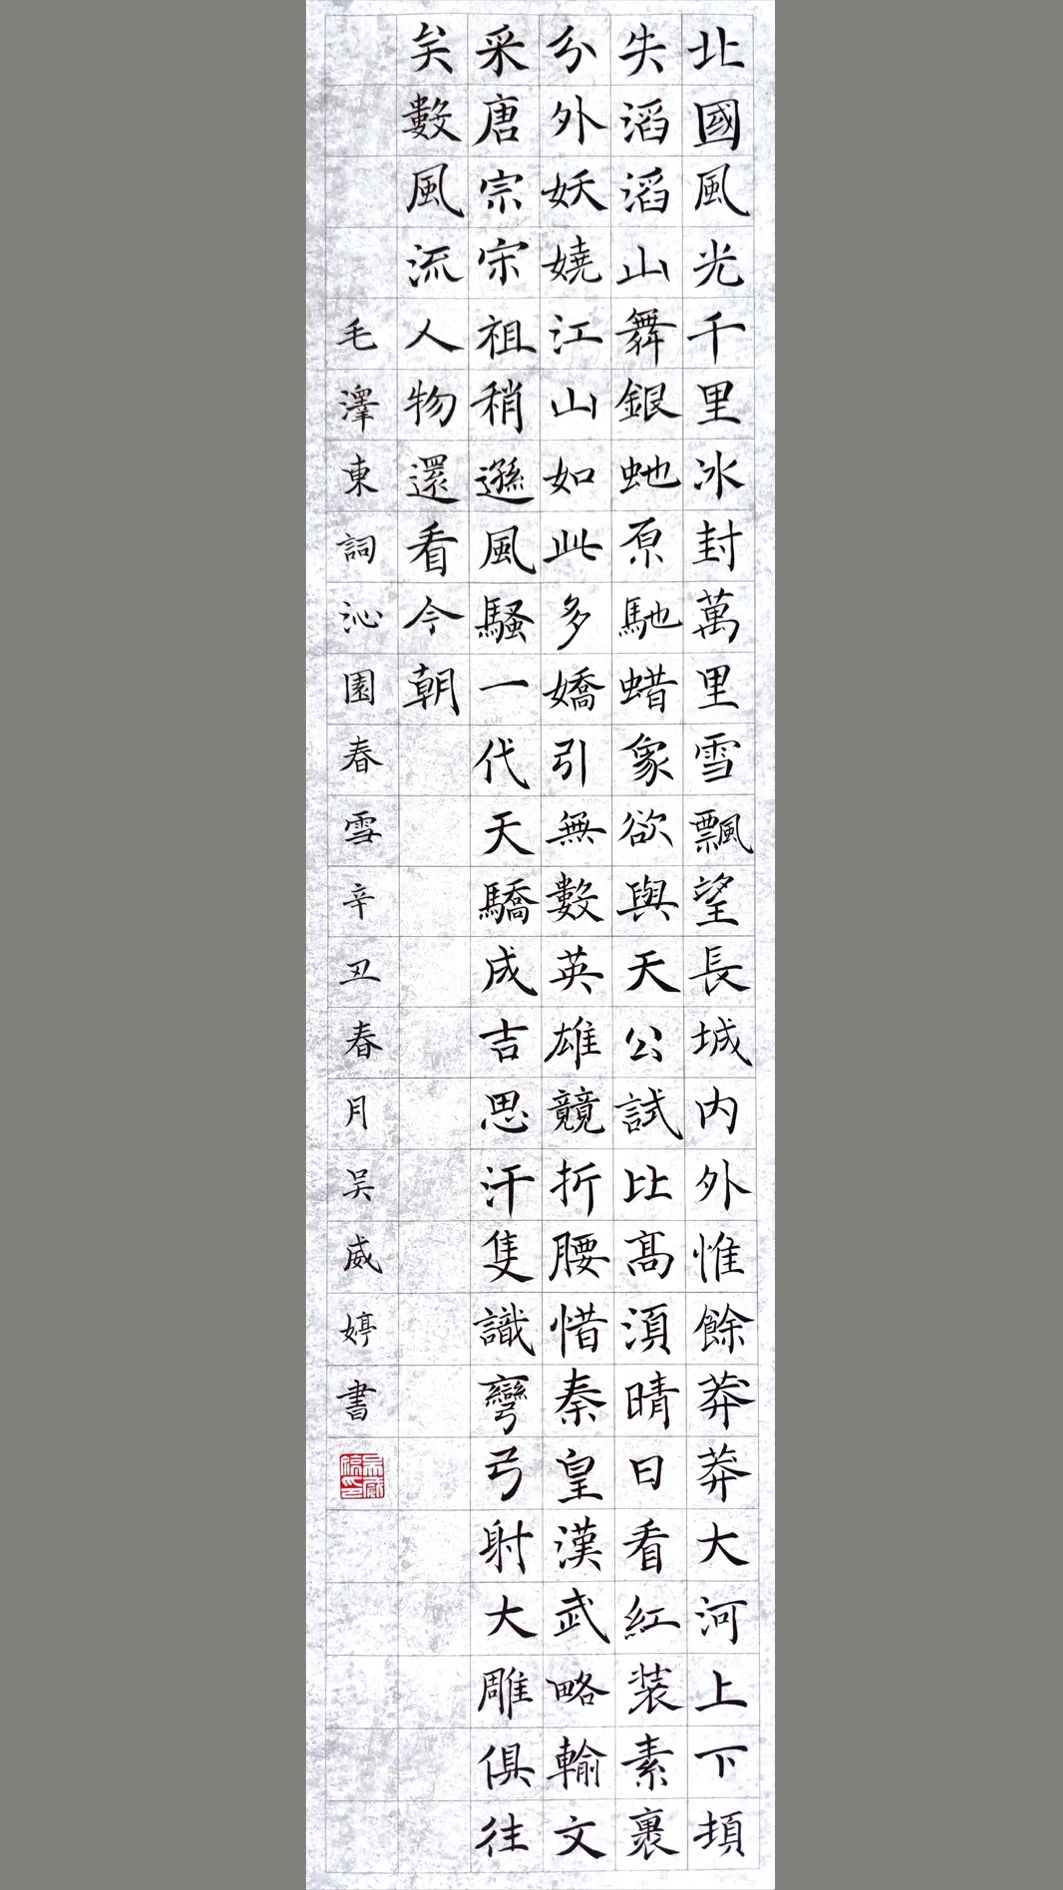 北國風光千里冰封萬里雪飄望長城内外惟餘莽莽大河上下頓
失滔滔山舞銀虵原馳蜡象欲與天公試比高須晴日看紅装素裹
分外妖嬈江山如此多嬌引無數英雄競折腰惜秦皇漢武略輸文
采唐宗宋祖稍遜風騷一代天驕成吉思汗隻識彎弓射大雕俱往
矣數風流人物還看今朝
毛澤東詞沁園春雪辛丑春月吴威婷書